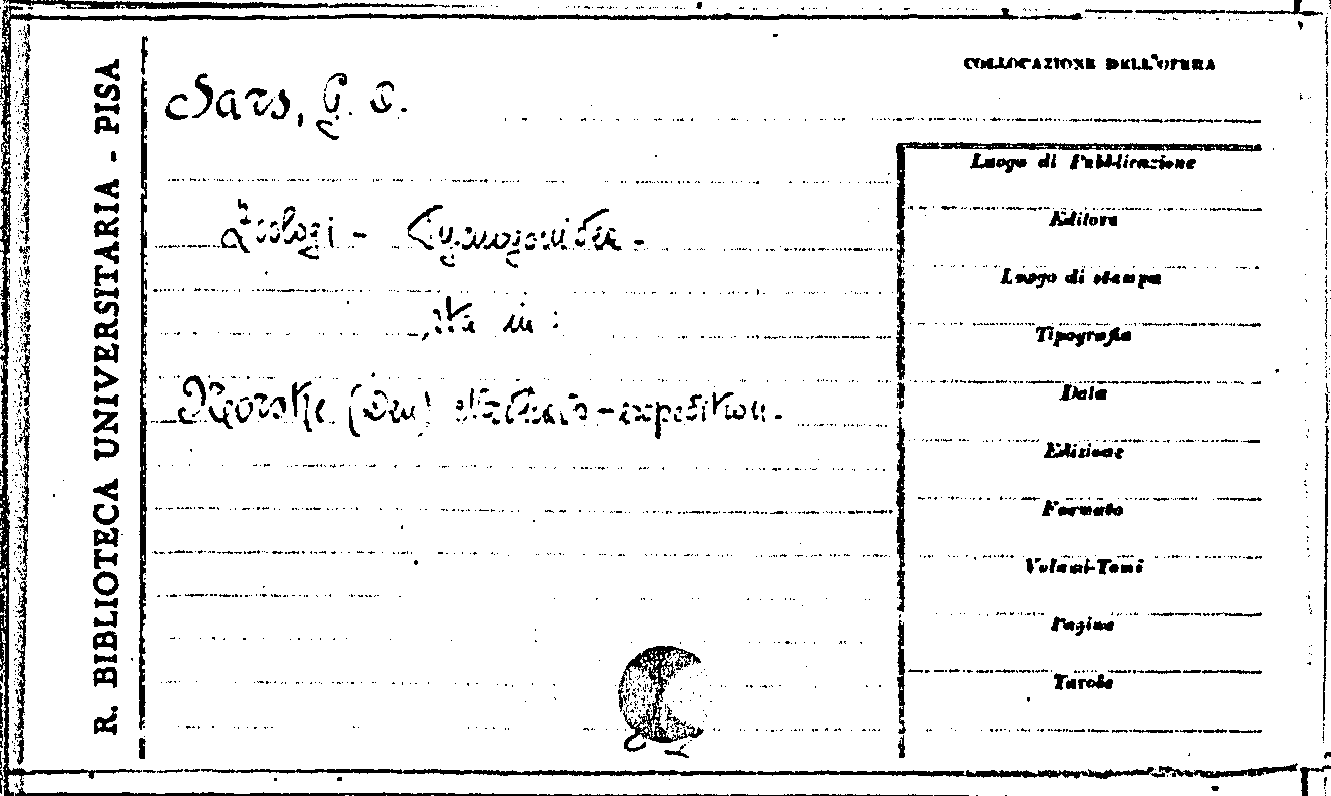 R. BIBLIOTECA UNIVERSITARIA - PISA
Sars, G. O.
Zoologi - Pycnogonidea -
Sta in :
Norske (Den) Nordhavs-expedition.
COLLOCAZIONE DELL'OPERA
Luogo di Pubblicazione
Editore
Luogo di stampa
Tipografia
Data
Edizione
Formato
Volumi-Tomi
Pagine
Tavole